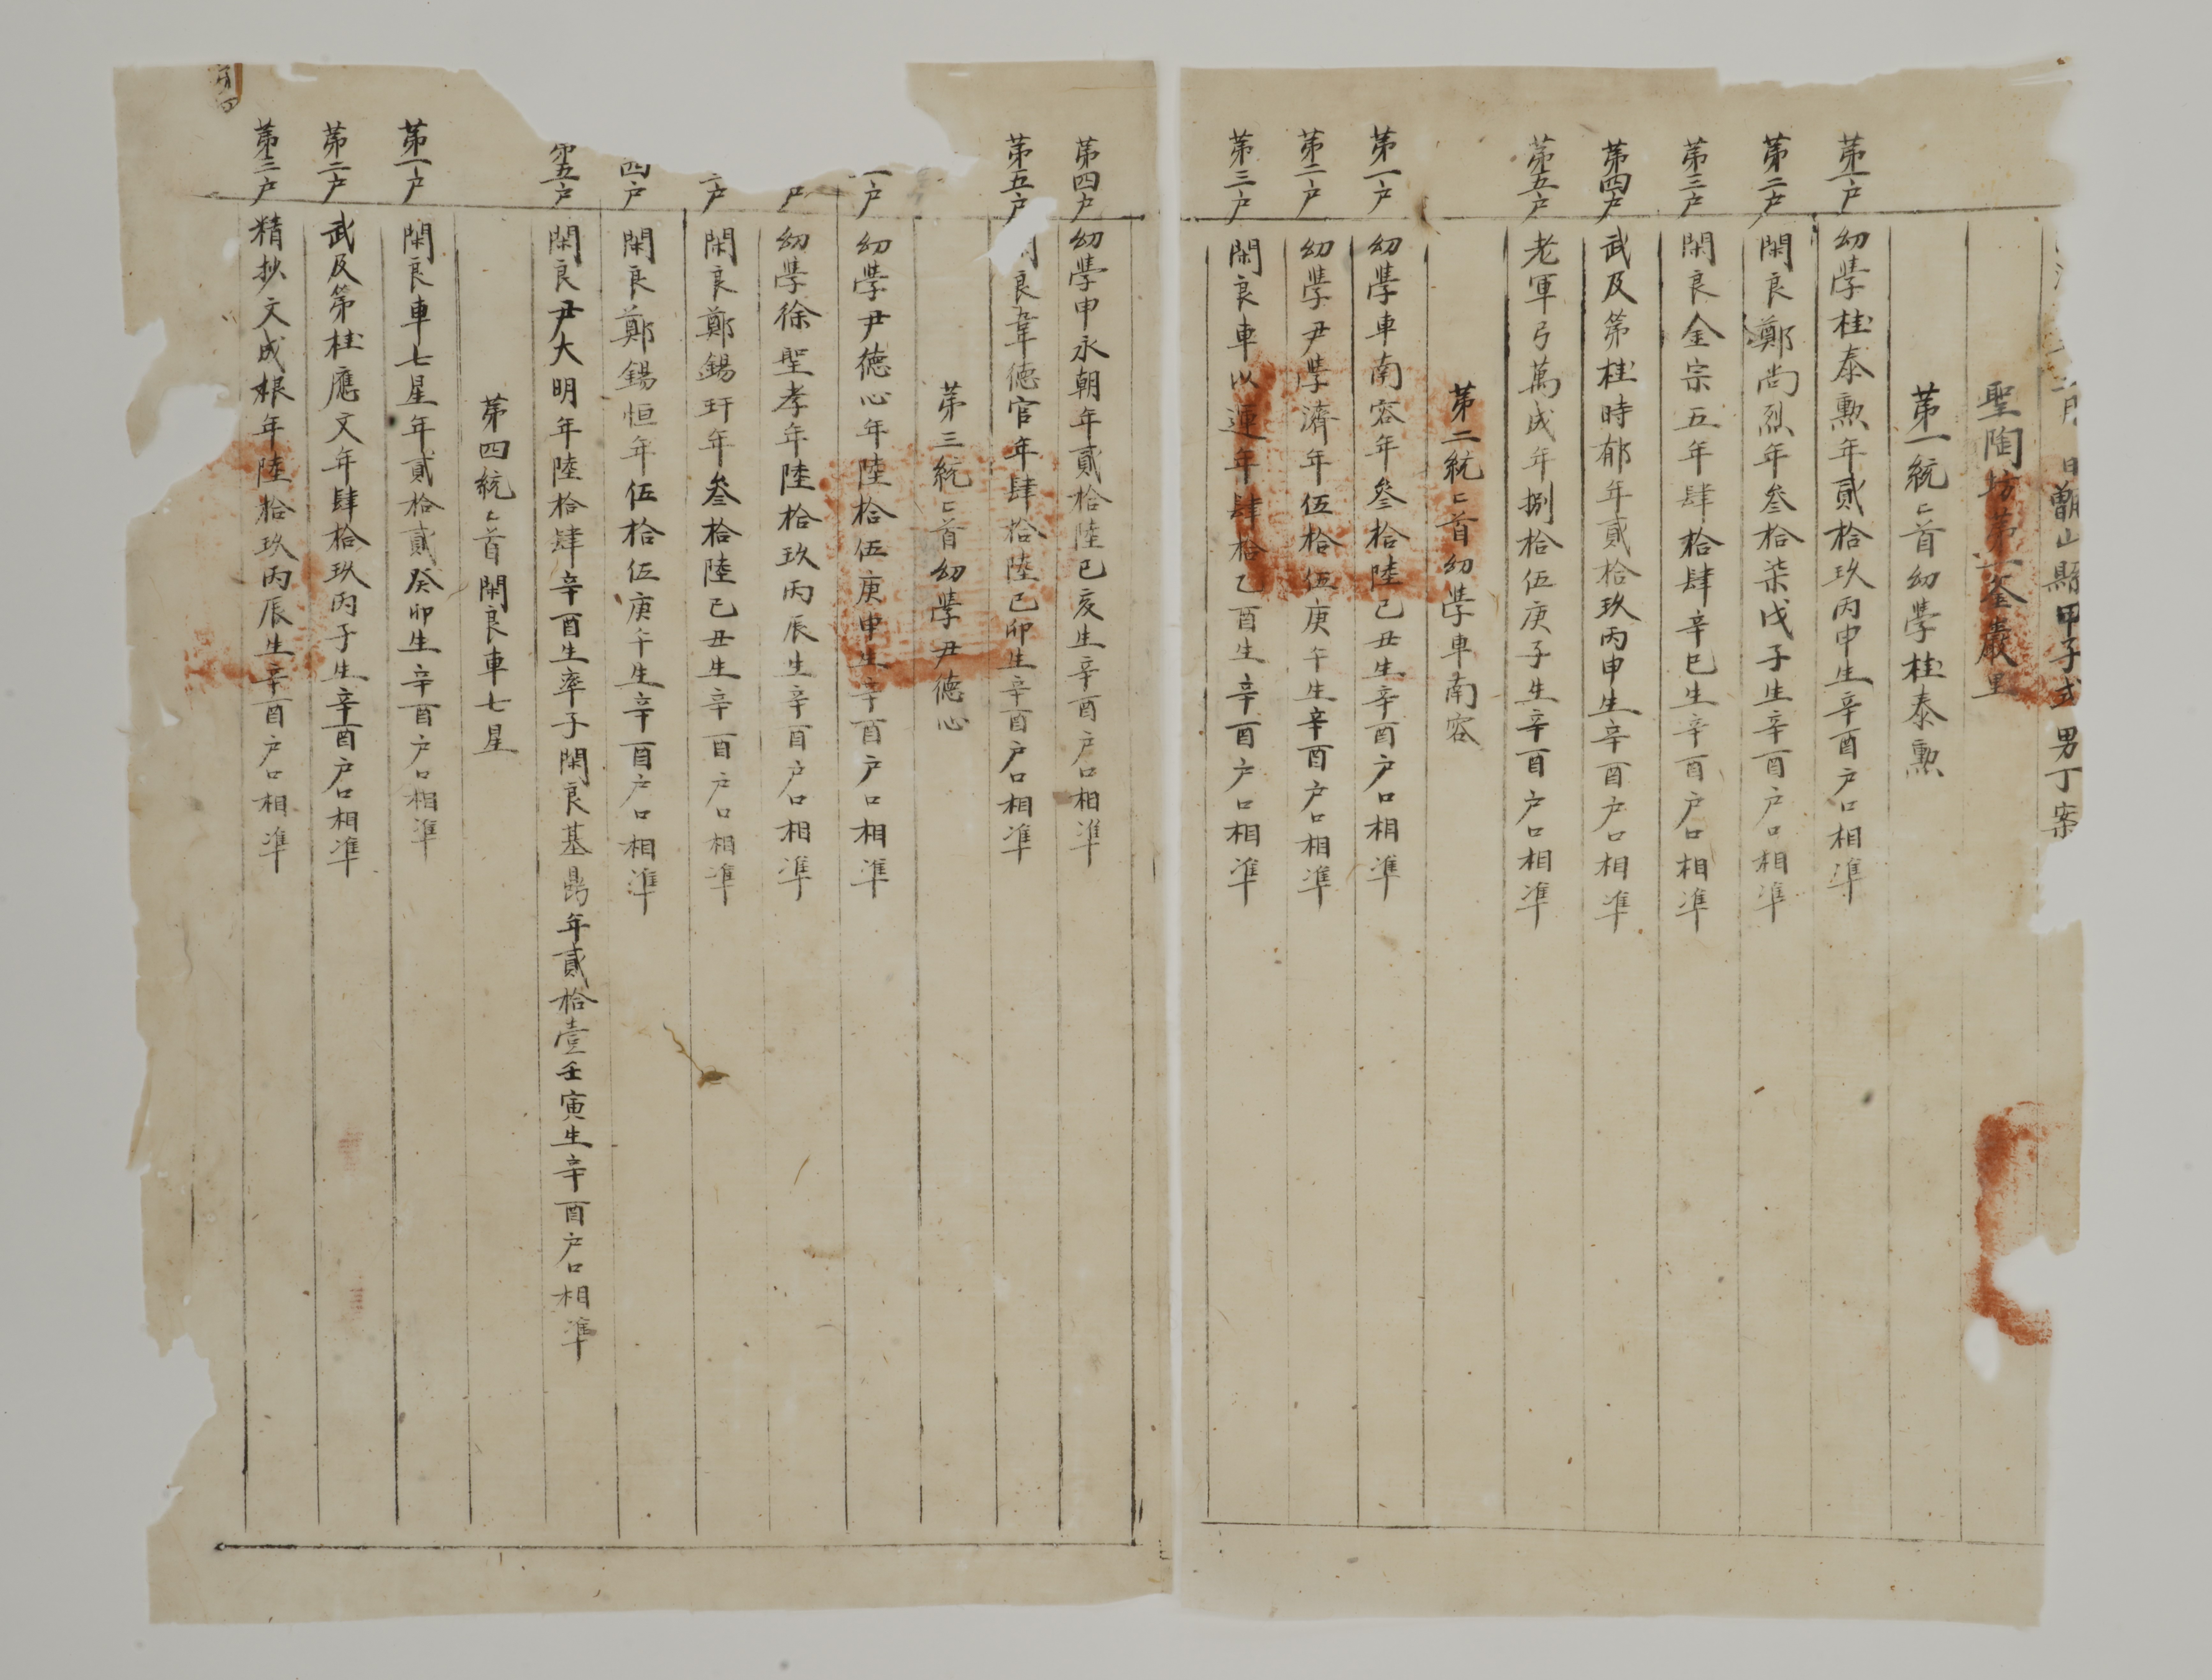 月 日 甑山縣甲子式男丁案
聖陶坊第一釜嚴里
第一統〻首幼學桂泰勲
第一户 幼學桂泰勲年貳拾玖丙申生辛酉户口相準
第二户 閑良鄭尚烈年叁拾柒戊子生辛酉户口相準
第三户 閑良金宗五年肆拾肆辛巳生辛酉户口相準
第四户 武及第桂時郁年貳拾玖丙申生辛酉户口相準
第五户 老軍弓萬成年捌拾伍庚子生辛酉户口相準
第二統〻首幼學車南容
第一户 幼學車南容年叁拾陸己丑生辛酉户口相準
第二户 幼學尹學濟年伍拾伍庚午生辛酉户口相準
第三户 閑良車以運年肆拾乙酉生辛酉户口相準
第四户 幼學申永朝年貳拾陸己亥生辛酉户口相準
第五户 良韋德官年肆拾陸己卯生辛酉户口相準
第三統〻首幼學尹德心
一户 幼學尹德心年陸拾伍庚申生辛酉户口相準
户 幼學徐聖孝年陸拾玖丙辰生辛酉户口相準
户 閑良鄭錫玕年叁拾陸己丑生辛酉户口相準
四户 閑良鄭錫恒年伍拾伍庚午生辛酉户口相準
第五户 閑良尹大明年陸拾肆辛酉生率子閑良基昜年貳拾壹壬寅生辛酉户口相準
第四統〻首閑良車七星
第一户 閑良車七星年貳拾貳癸卯生辛酉户口相準
第二户 武及第桂應文年肆拾玖丙子生辛酉户口相準
第三户 精抄文成根年陸拾玖丙辰生辛酉户口相準